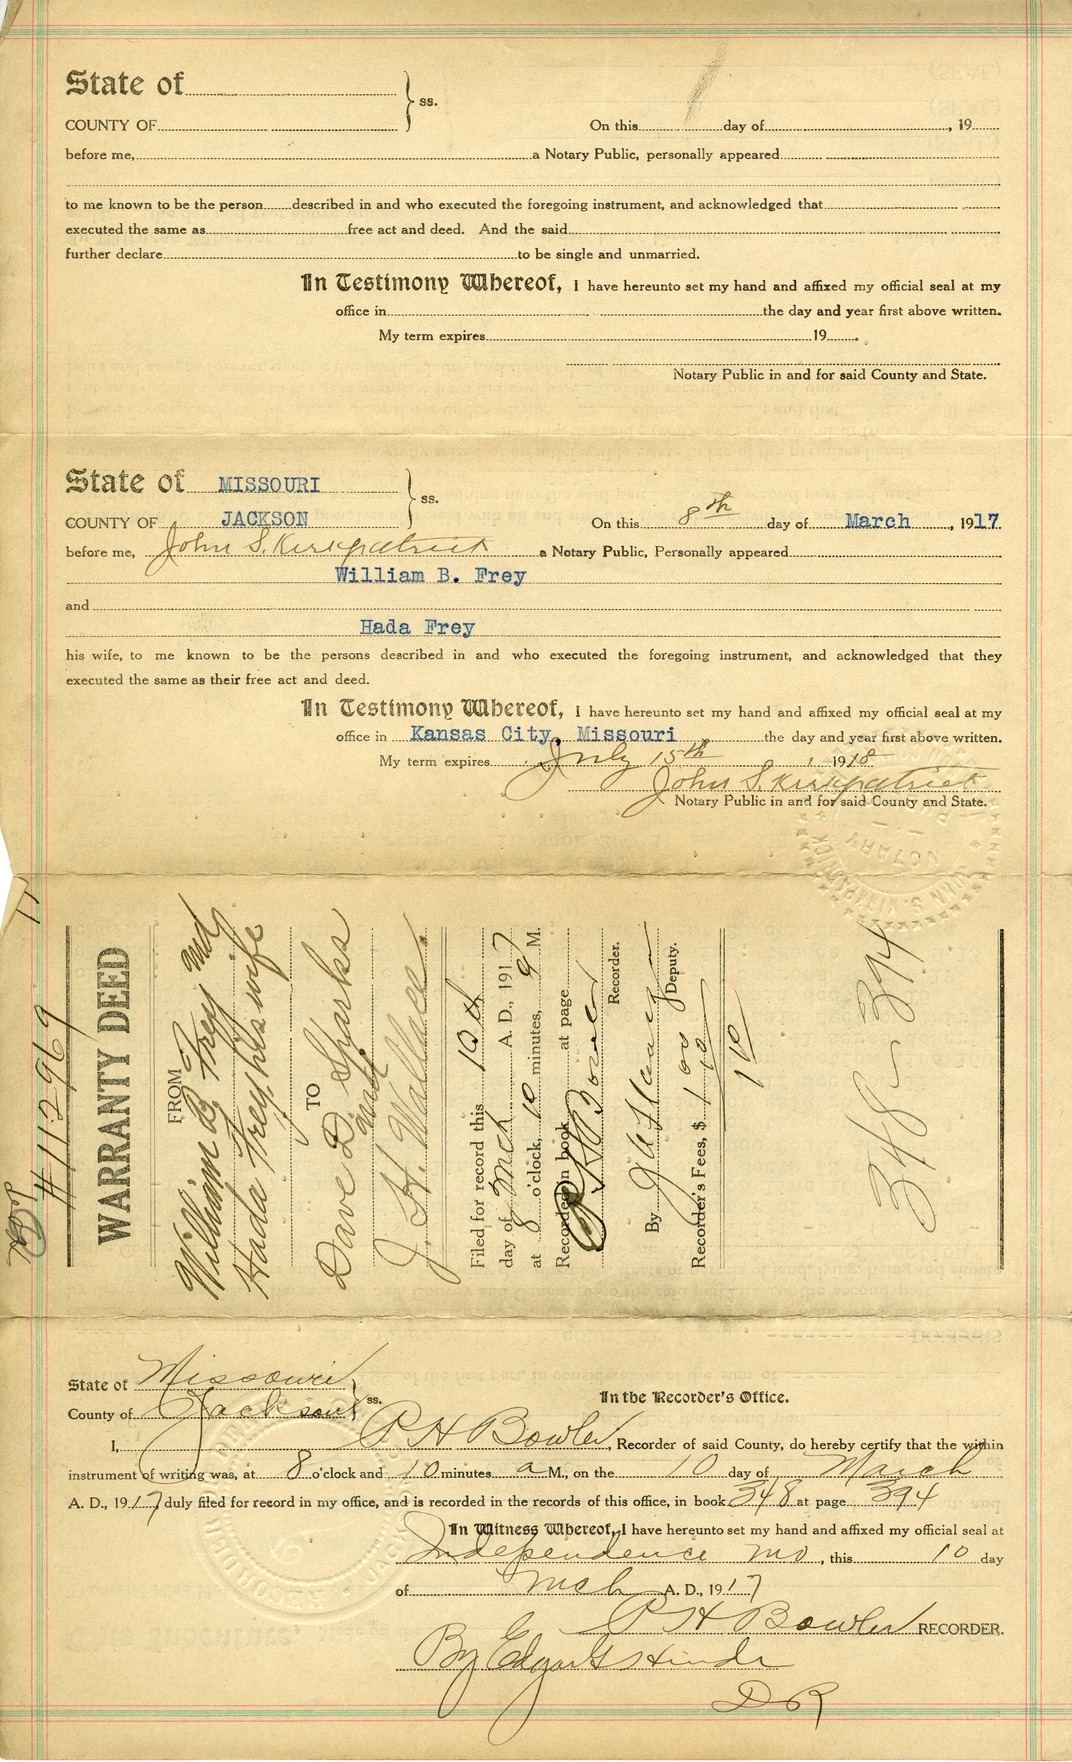 State of
COUNTY OF ss. On this day of , 19
before me, a Notary Public, personally appeared
to me known to be the person described in and who executed the foregoing instrument, and acknowledged that
executed the same as free act and deed. And the said
further declare to be single and unmarried.
In Testimony Whereof, I have hereunto set my hand and affixed my official seal at my
office in the day and year first above written.
My term expires 19 .
Notary Public in and for said County and State.
State of MISSOURI
ss.
COUNTY OF JACKSON On this 8th day of March , 1917
before me, John S. Kirkpatrick a Notary Public, Personally appeared
William B. Frey
and
Hada Frey
his wife, to me known to be the persons described in and who executed the foregoing instrument, and acknowledged that they
executed the same as their free act and deed.
In Testimony Whereof, I have hereunto set my hand and affixed my official seal at my
office in Kansas City, Missouri the day and year first above written.
My term expires July 15th , 1918
John S. Kirkpatrick
Notary Public in and for said County and State.
JOHN S. KIRKPATRICK
NOTARY
11
#112969
WARRANTY DEED
FROM
William B Frey and
Hada Frey his wife
TO
Dave D. Sparks
and
J. H. Wallace.
Filed for record this 10th
day of Mch A. D., 1917
at 8 o'clock, 10 minutes, a M.
Recorded in book at page
P H Bowler
Recorder.
By Deputy.
Recorder's Fees, $ 1 00
10
1 10
348-394
State of Missouri
ss. In the Recorder's Office.
County of Jackson
I, P H Bowler, Recorder of said County, do hereby certify that the within
instrument of writing was, at 8 o'clock and 10 minutes a M., on the 10 day of March
A. D., 1917 duly filed for record in my office, and is recorded in the records of this office, in book 348 at page 394
In Witness Whereof, I have hereunto set my hand and affixed my official seal at
Independence Mo , this 10 day
of Mch A. D., 1917
P H Bowler RECORDER.
By Edgar G Hinde
D R